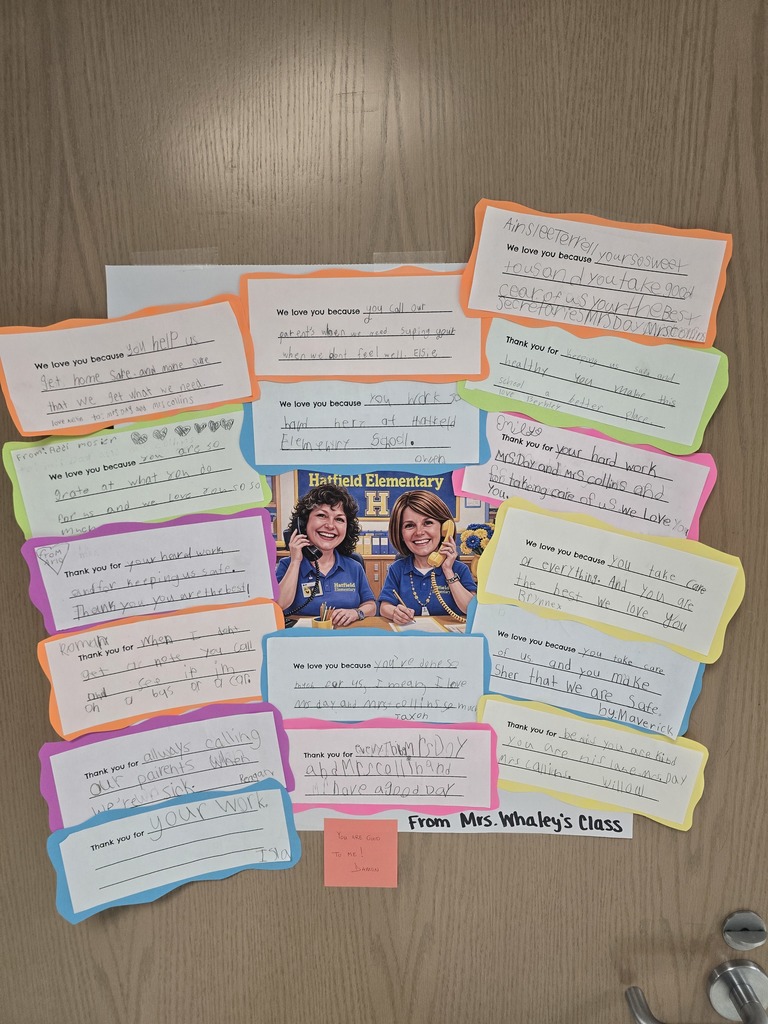 AinsleeTerrell
We love you because yoursosweet
tousandyoutake good
cear of us yourtheBest
SecretariesMrsDay Mrscollins
We love you because you call our
parents when we need suping your
when we dont feel well. Elsie
We love you because you help us
get home safe. and make sure
that we get what we need.
love note to: mrs day and mrs collins
Thank you for keeping us safe and
healthy you make this
school a better place.
love
We love you because you work so
hard here at Hatfield
Elementry School.
owen
From: Addi
We love you because you are so
grate at what you do
for us and we love you so so
much
Emily
Thank you for your hard work
MrsDay and Mrs.collins and
for taking care of us. we Love you
you.
Hatfield Elementary
H
Hatfield
Elementary
Hatfield
Elementary
From
Thank you for your hard work
and for keeping us safe.
Thank you you are the best!
We love you because you take care
of everything. And you are
the best we love you
Brynnex
Roman
Thank you for when I dont
get a note you call
and see if im
on a bys or a car.
We love you because you've done so
much for us, I mean, I love
mrs day and mrs-collins so much
Jaxon
We love you because you take care
of us and you make
Sher that we are Safe.
by: Maverick
Thank you for allways calling
our parents when
we're sick.
Thank you for everything MrsDay
and Mrs collinand
have a good Day
Thank you for
you are nis lake mrs Day
mrs calling William
Thank you for your work
Isla
From Mrs. Whaley's Class
You are Good
To me!
Damon